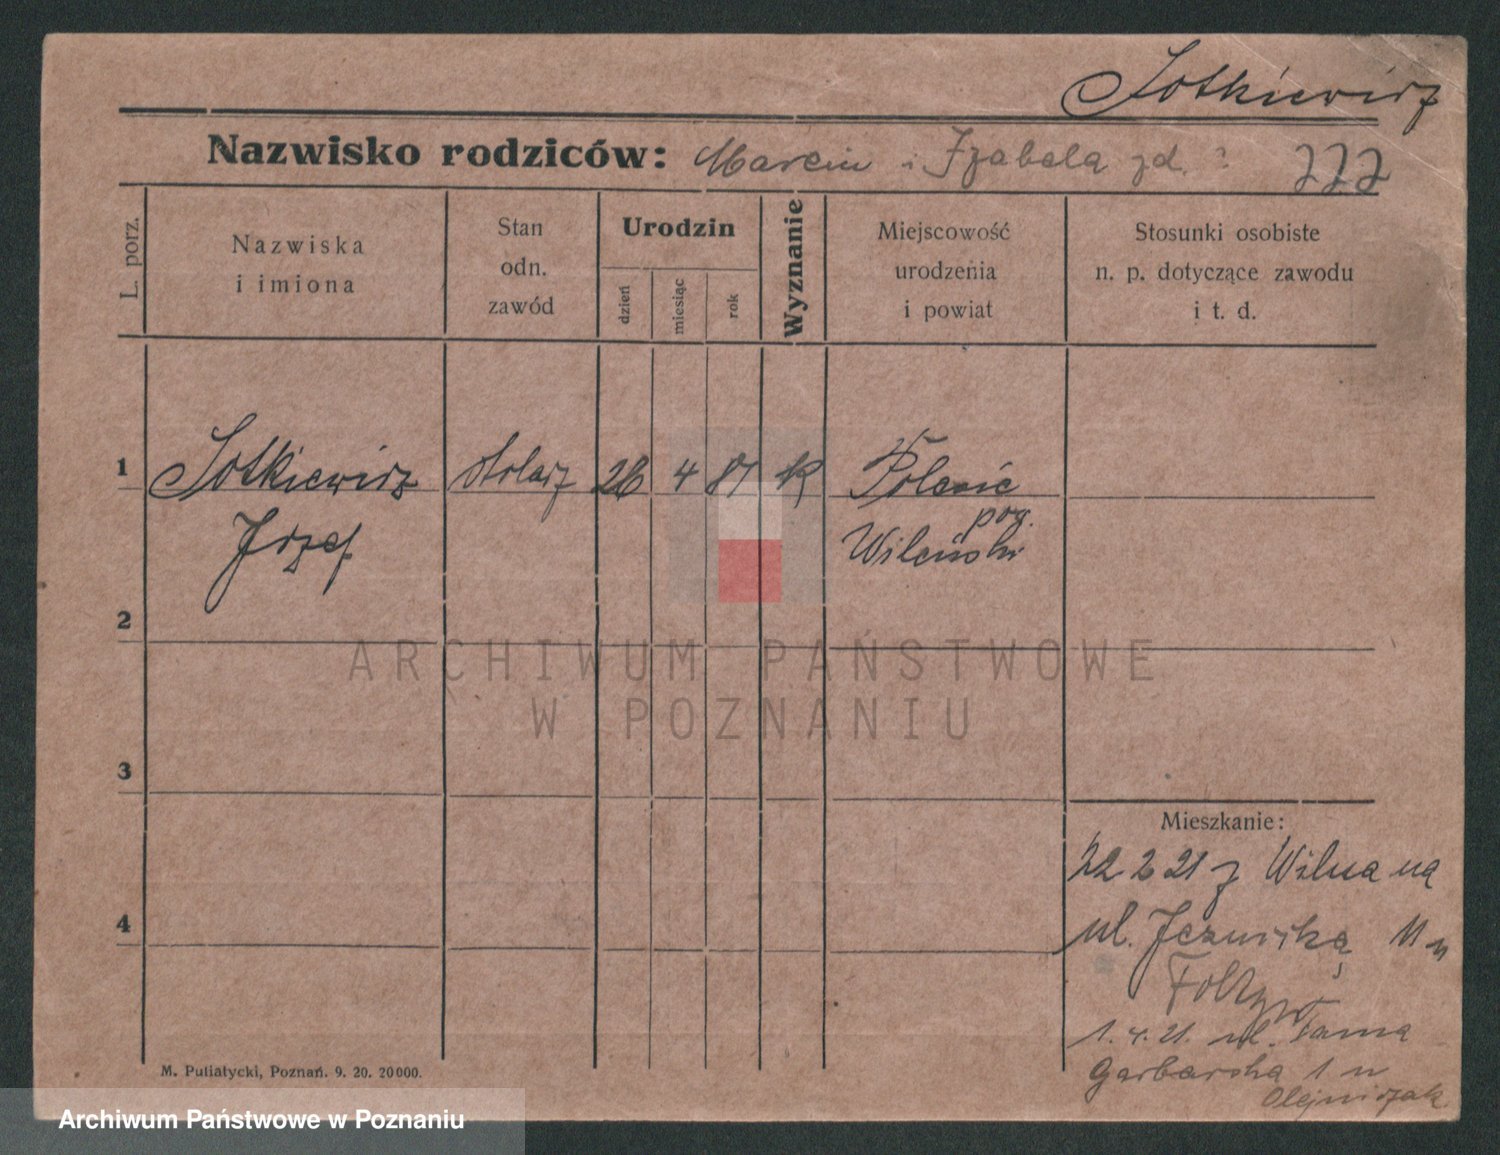 Sotkiewicz
Nazwisko rodziców: Marcin i Izabela zd. ?
L. porz.
Nazwiska
i imiona
Stan
odn.
zawód
Urodzin
dzień
miesiąc
rok
Wyznanie
Miejscowość
urodzenia
i powiat
Stosunki osobiste
n. p. dotyczące zawodu
i t. d.
1
Sotkiewicz stolarz 26 4 81
Józef
pow.
Wileński
2
ARCHIWUM PAŃSTWOWE
W POZNANIU
3
Mieszkanie:
22 2 21 z Wilna na
4
ul. Jezuicką 11
1.4.21. ul. Tama
Garbarska 1
Olejniczak
M. Putiatycki, Poznań. 9. 20. 20000.
Archiwum Państwowe w Poznaniu